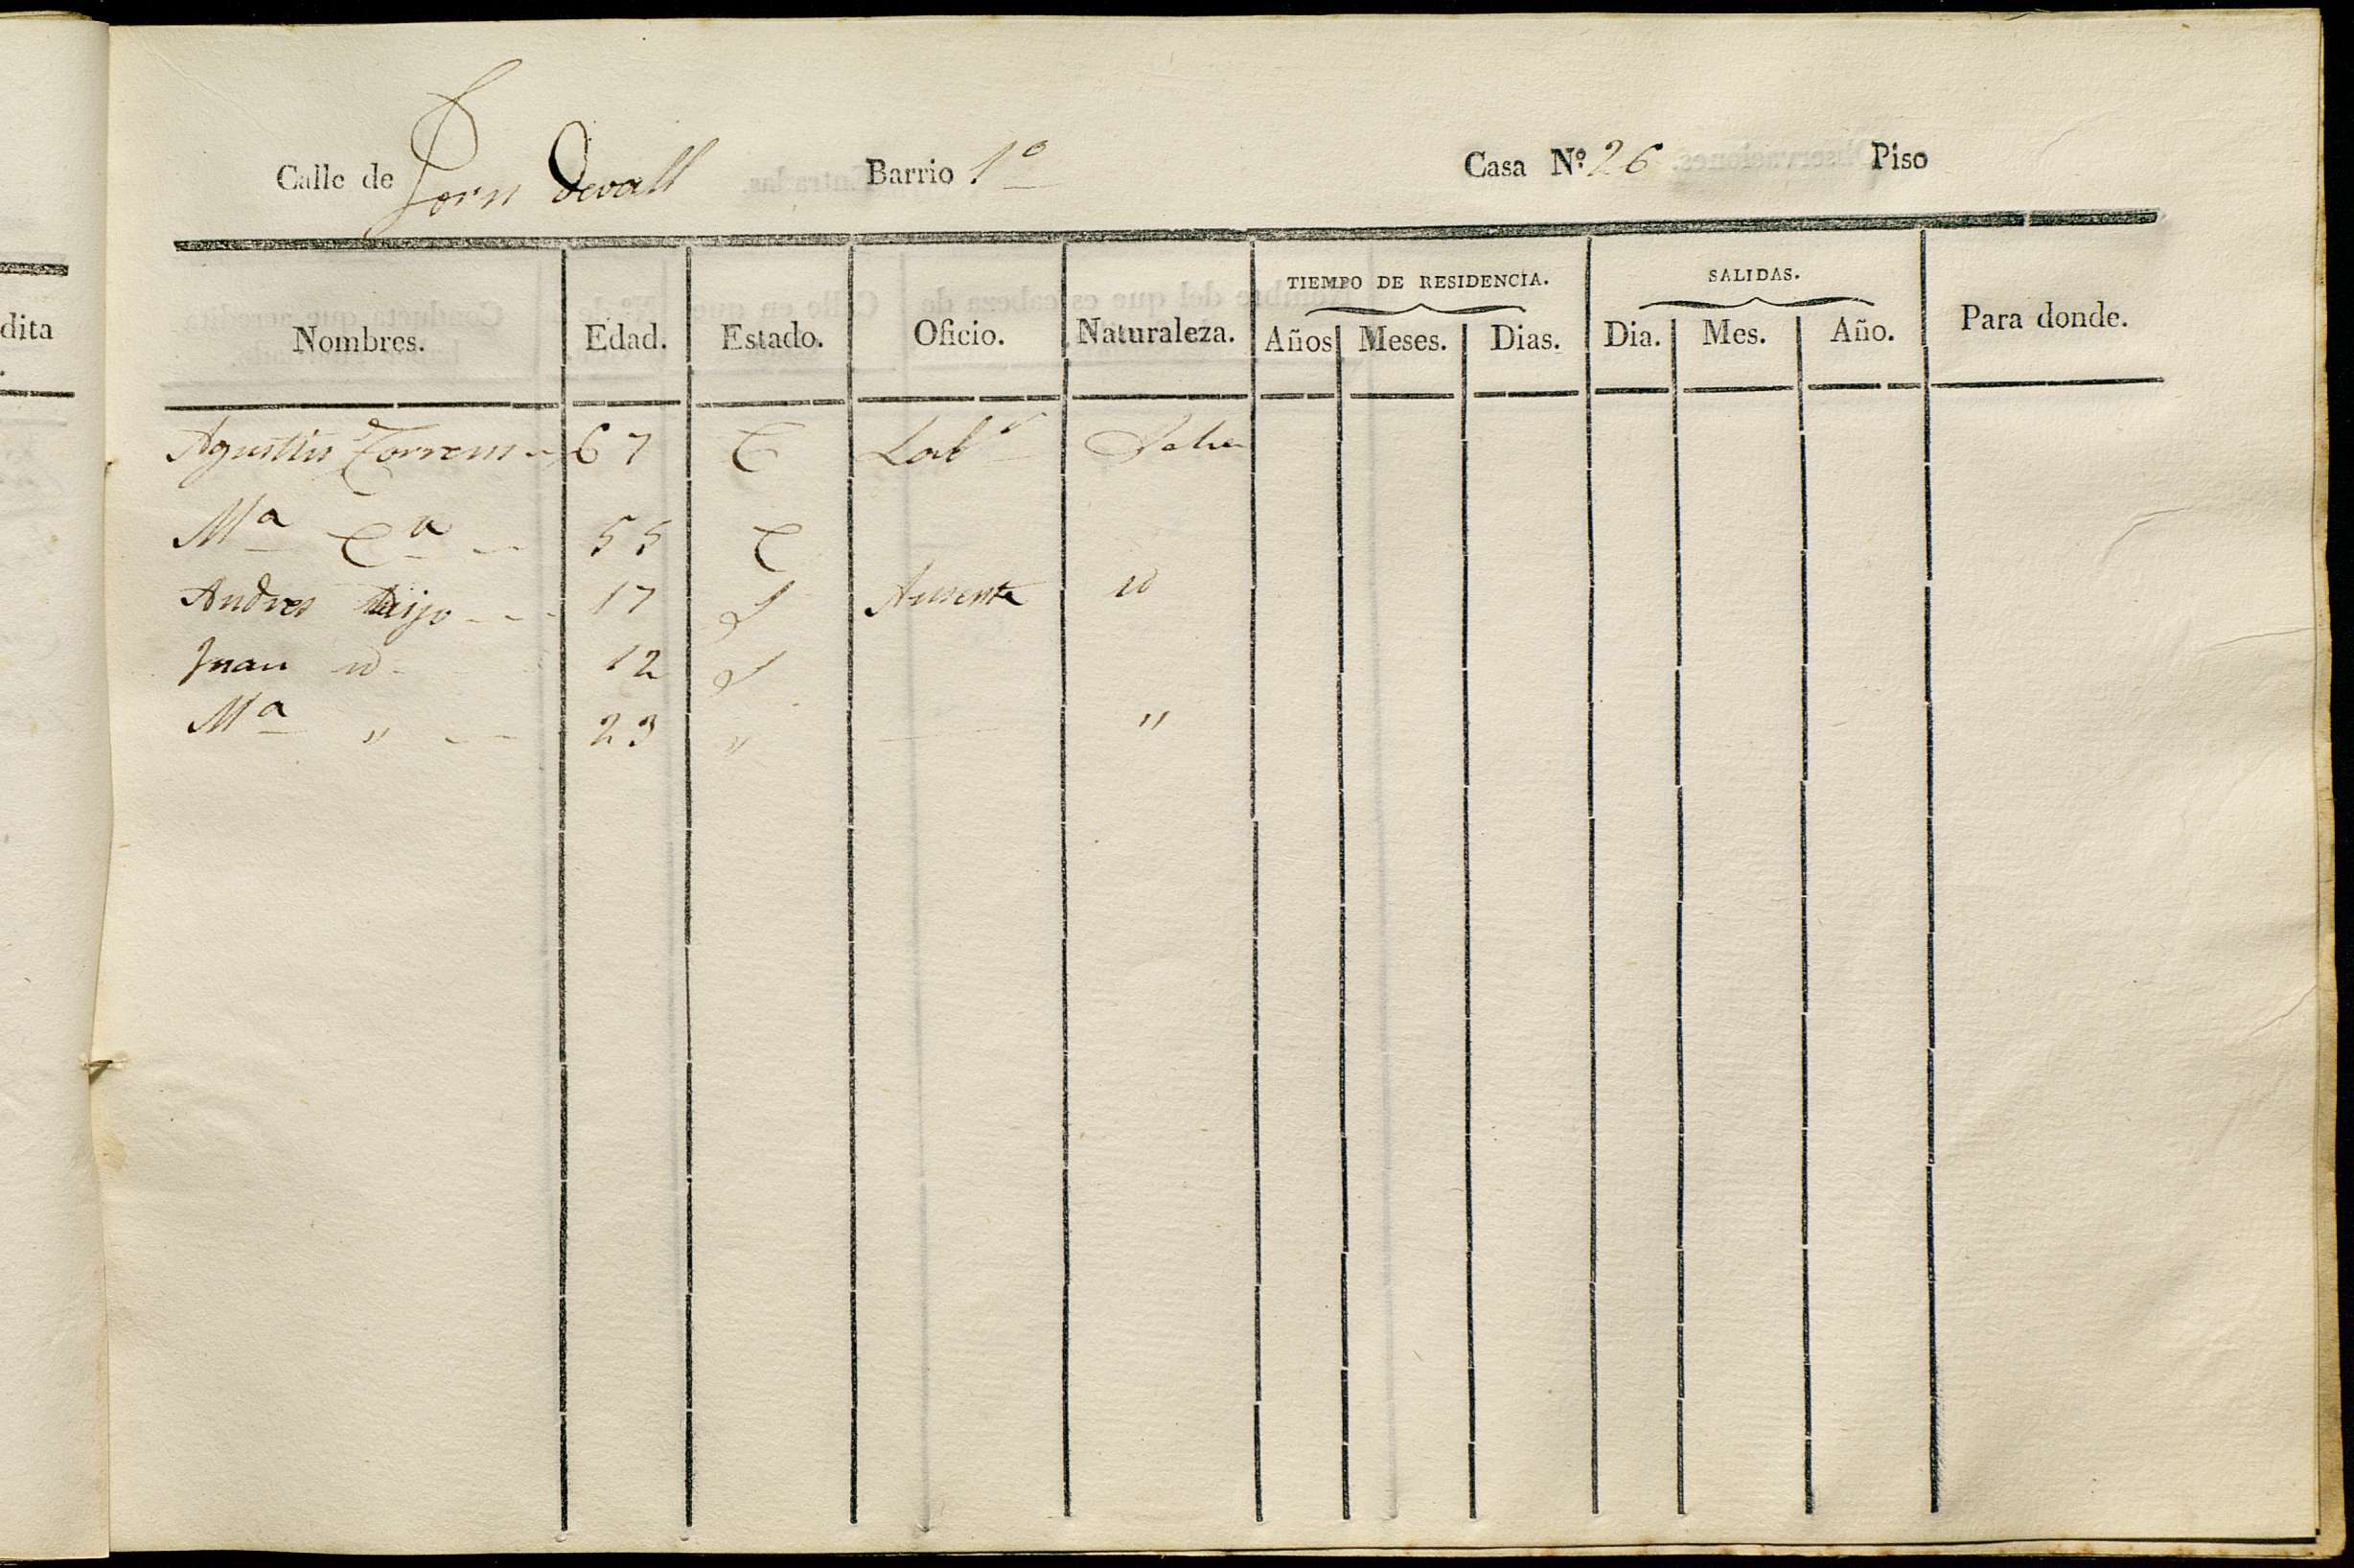 dita
Calle de Forn devall Barrio 1º Casa Nº 26 Piso
TIEMPO DE RESIDENCIA. SALIDAS.
Nombres. Edad. Estado. Oficio. Naturaleza. Años Meses. Dias. Dia. Mes. Año. Para donde.
Agustin Torrens 67 C Labr
Mª Cª 55 C
Andres hijo 17 S Ausente id
Juan id 12 S
Mª " 23 " "